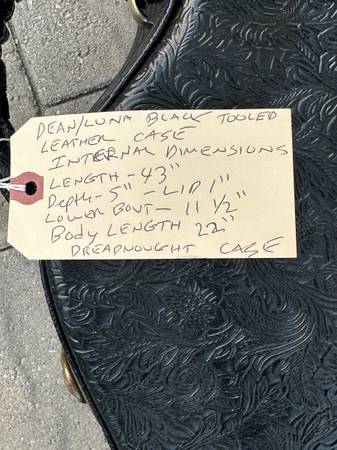 DEAN/LUNA BLACK TOOLED
LEATHER CASE
INTERNAL DIMENSIONS
LENGTH - 43"
Depth - 5" - LID 1"
LOWER BOUT - 11 1/2"
Body LENGTH 22"
DREADNOUGHT CASE